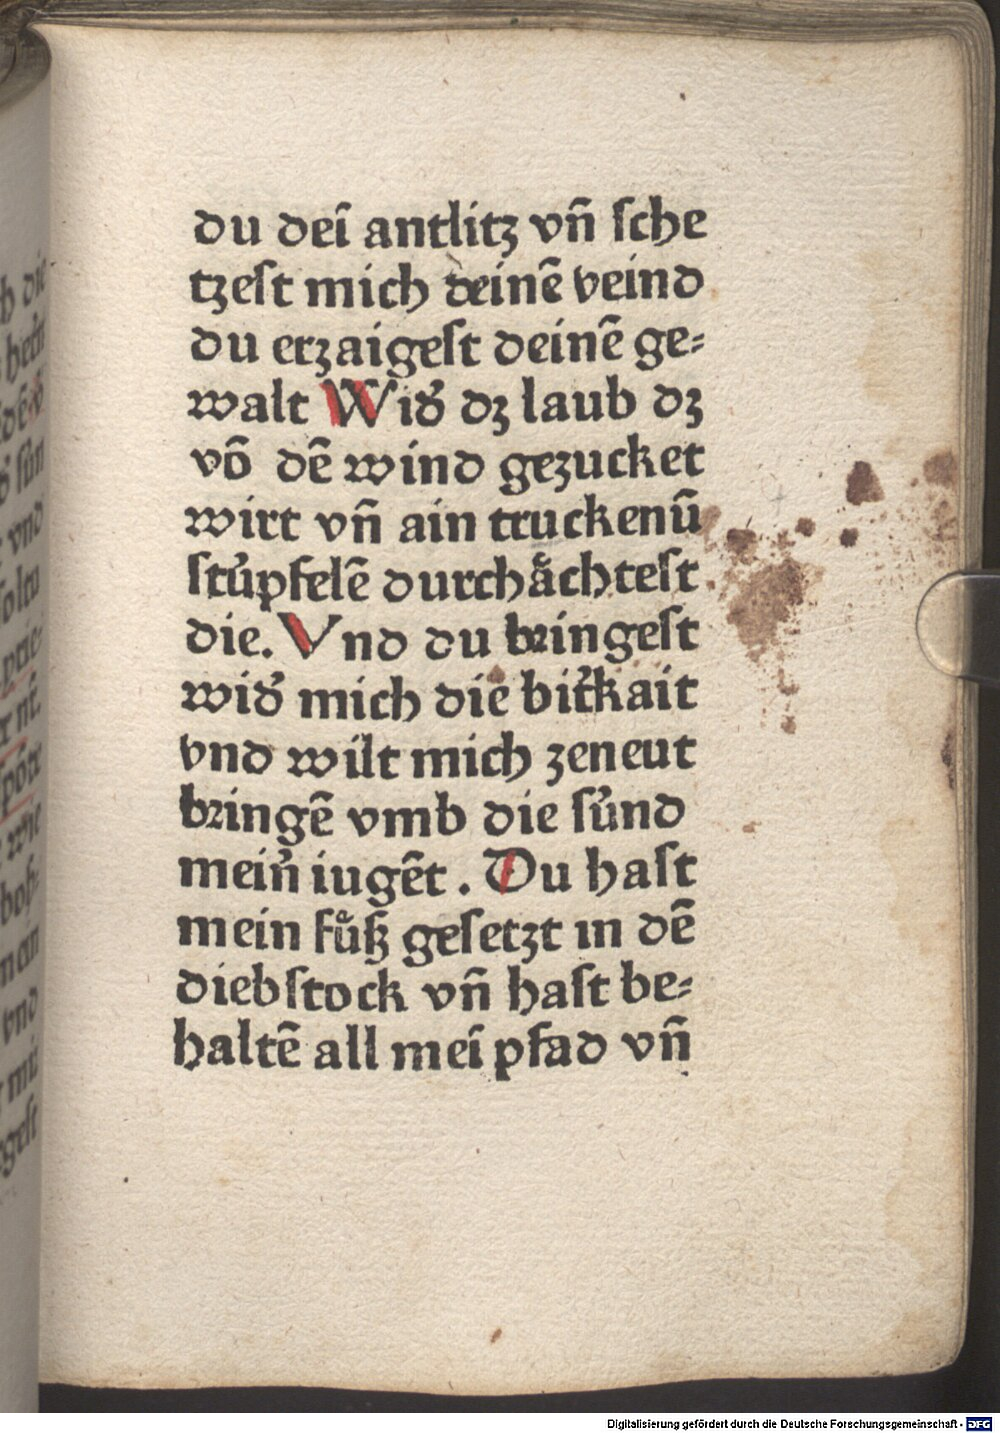 du dei̅ antlitz vn̅ ſche
tzeſt mich deine̅ veind
du erzaigeſt deine̅ ge⸗
walt Wid᷑ dz laub dz
vo̅ de̅ wind gezucket
wirt vn̅ ain truckenu̅
ſtu̍pfele̅ durchaͤchteſt
die. Vnd du bringeſt
wid᷑ mich die bit᷑kait
vnd wilt mich zeneut
bringe̅ vmb die ſu̍nd
mein᷑ iuge̅t . Du haſt
mein fuͦſz geſetzt in de̅
diebſtock vn̅ haſt be⸗
halte̅ all mei̅ pfad vn̅
Digitalisierung gefördert durch die Deutsche Forschungsgemeinschaft - DFG